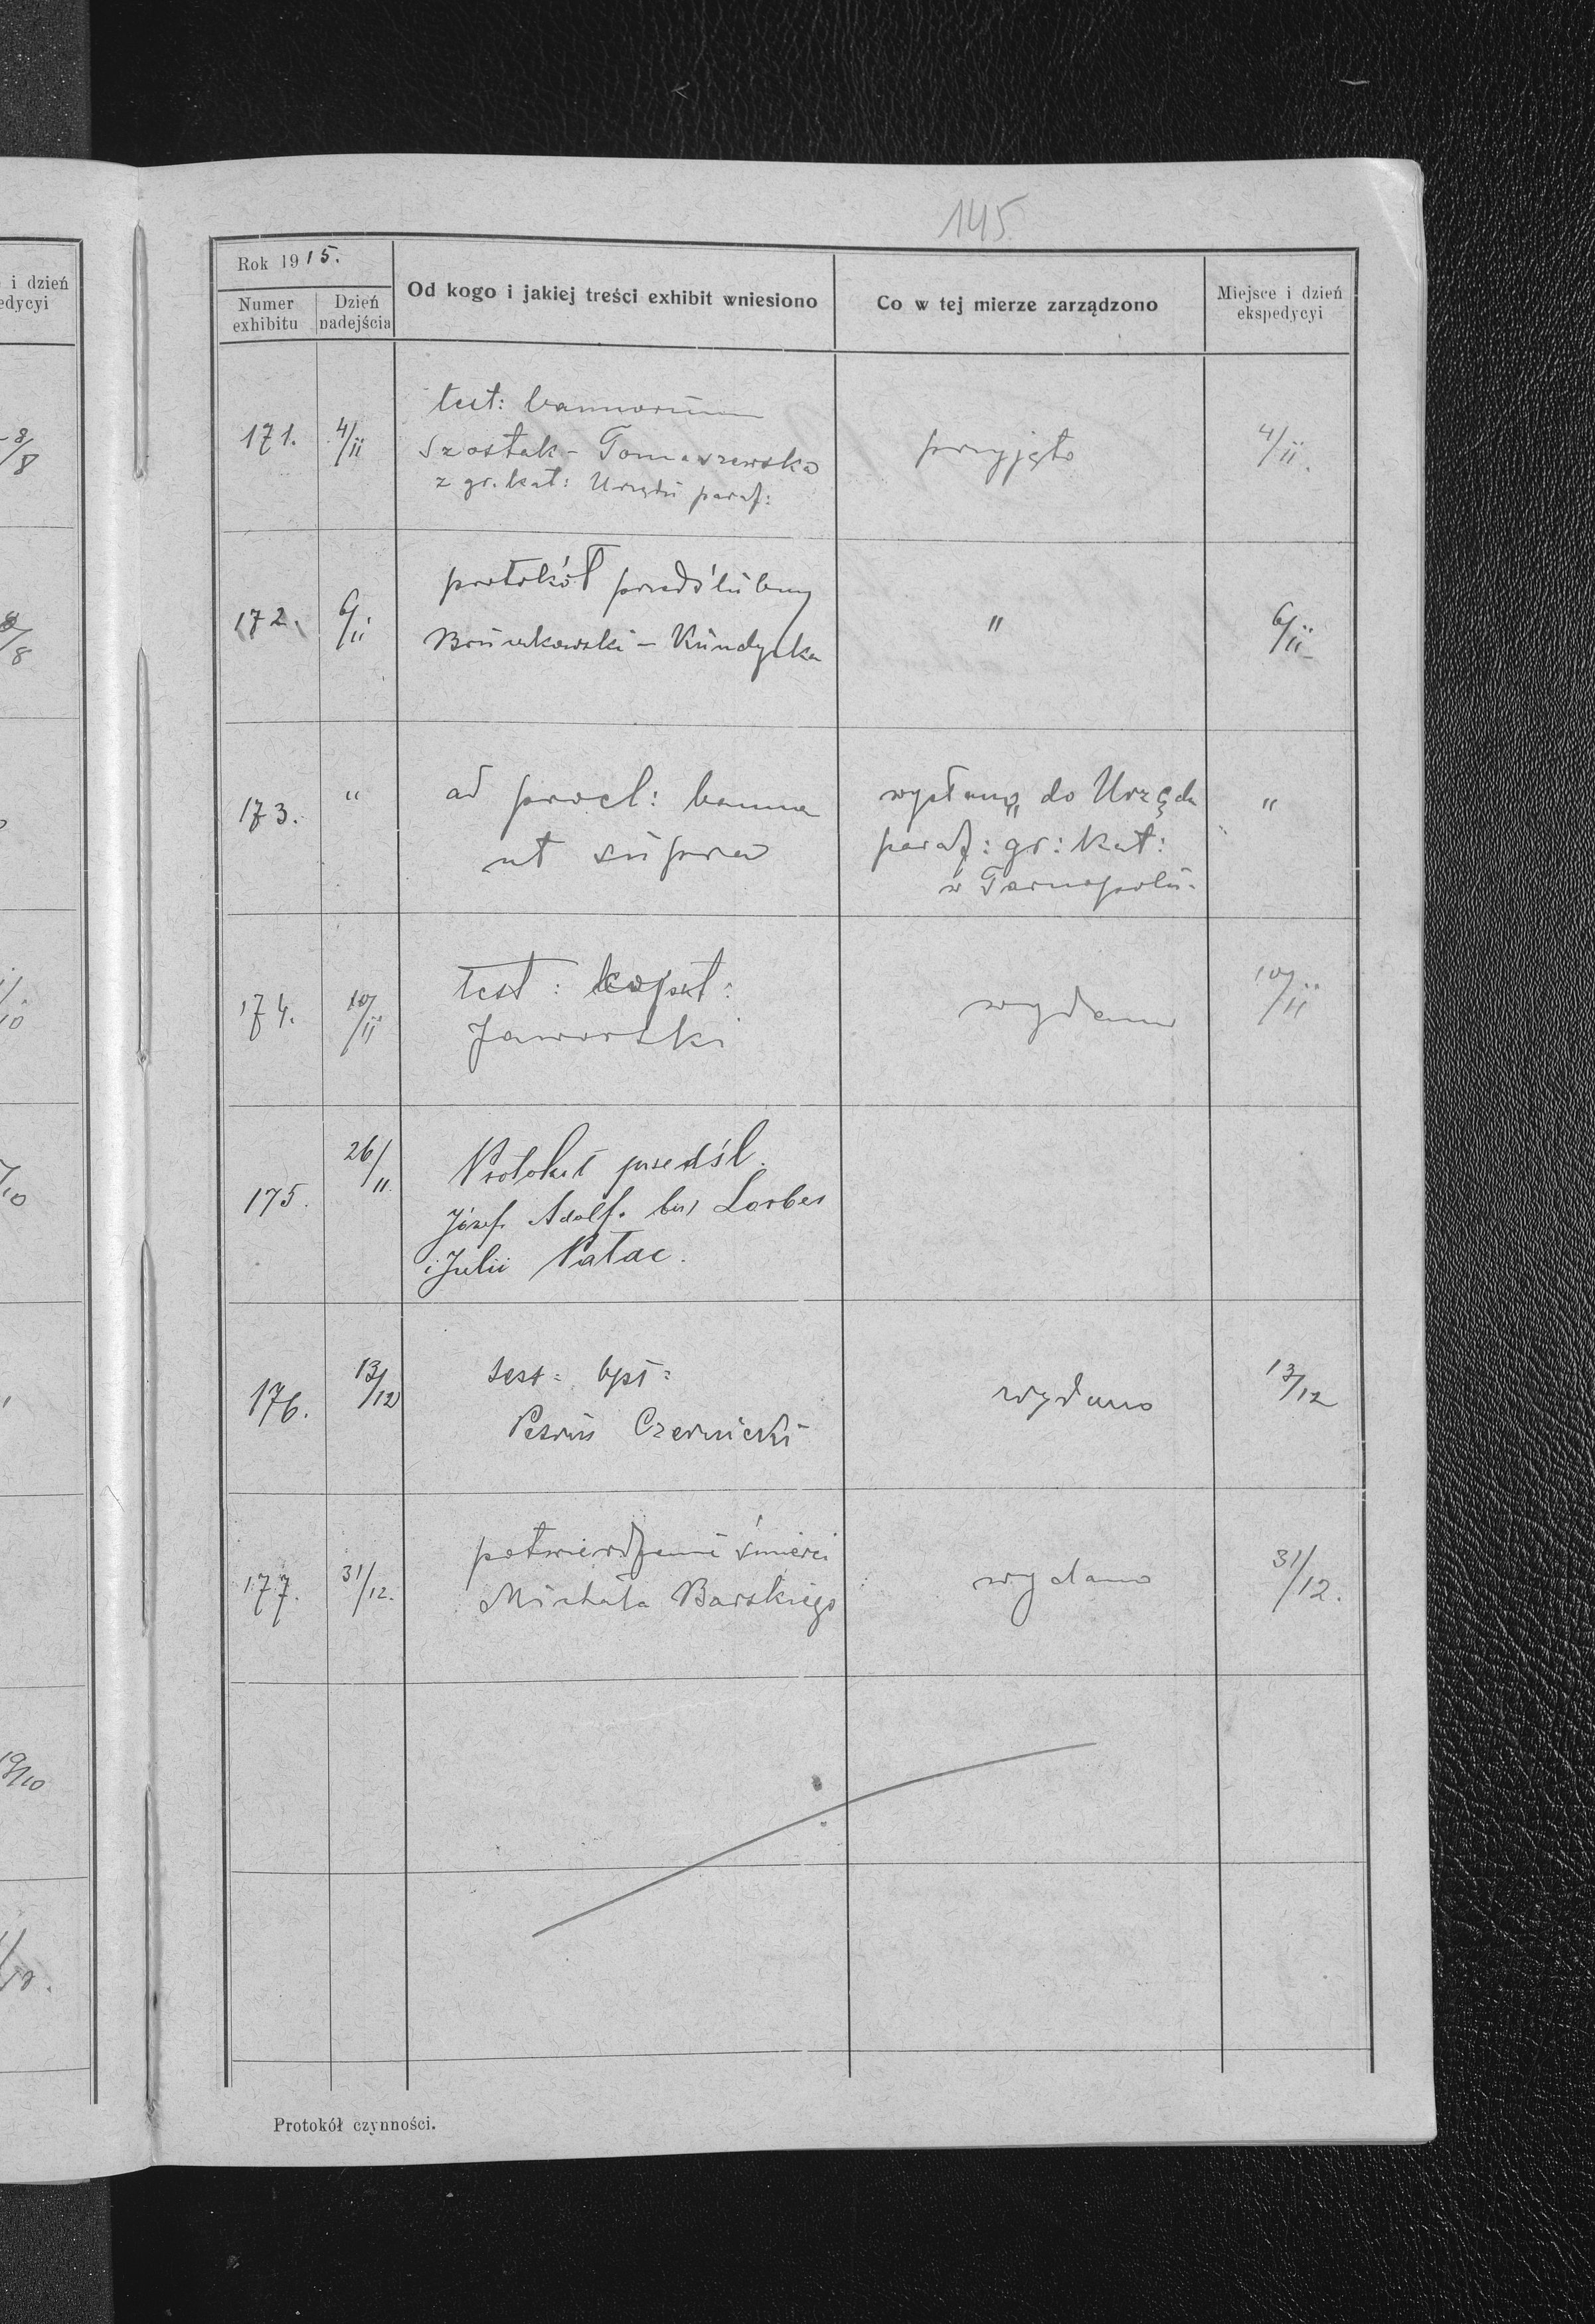 145.
Rok 1915.
Numer exhibitu
Dzień nadejścia
Od kogo i jakiej treści exhibit wniesiono
Co w tej mierze zarządzono
Miejsce i dzień ekspedycyi
i dzień
edycyi
171. 4/11 test: bannorum przyjęto 4/11.
Szostak - Tomaszewska
z gr. kat: Urzędu paraf:
172. 6/11 protokół przedślubny " 6/11
- Kundycka
173. " ad procl: banna wysłano do Urzędu "
ut supra paraf: gr: kat:
w Tarnopolu.
174. 10/11 test: wydano 10/11
Jaworski
175. 26/11 Protokół przedśl.
Józef. Adolf. Lorber
i Julii Pałac.
176. 13/12 test: bpt: wydano 13/12
Petrus Czernicki
177. 31/12. potwierdzenie śmierci wydano 31/12.
Michała Barskiego
Protokół czynności.